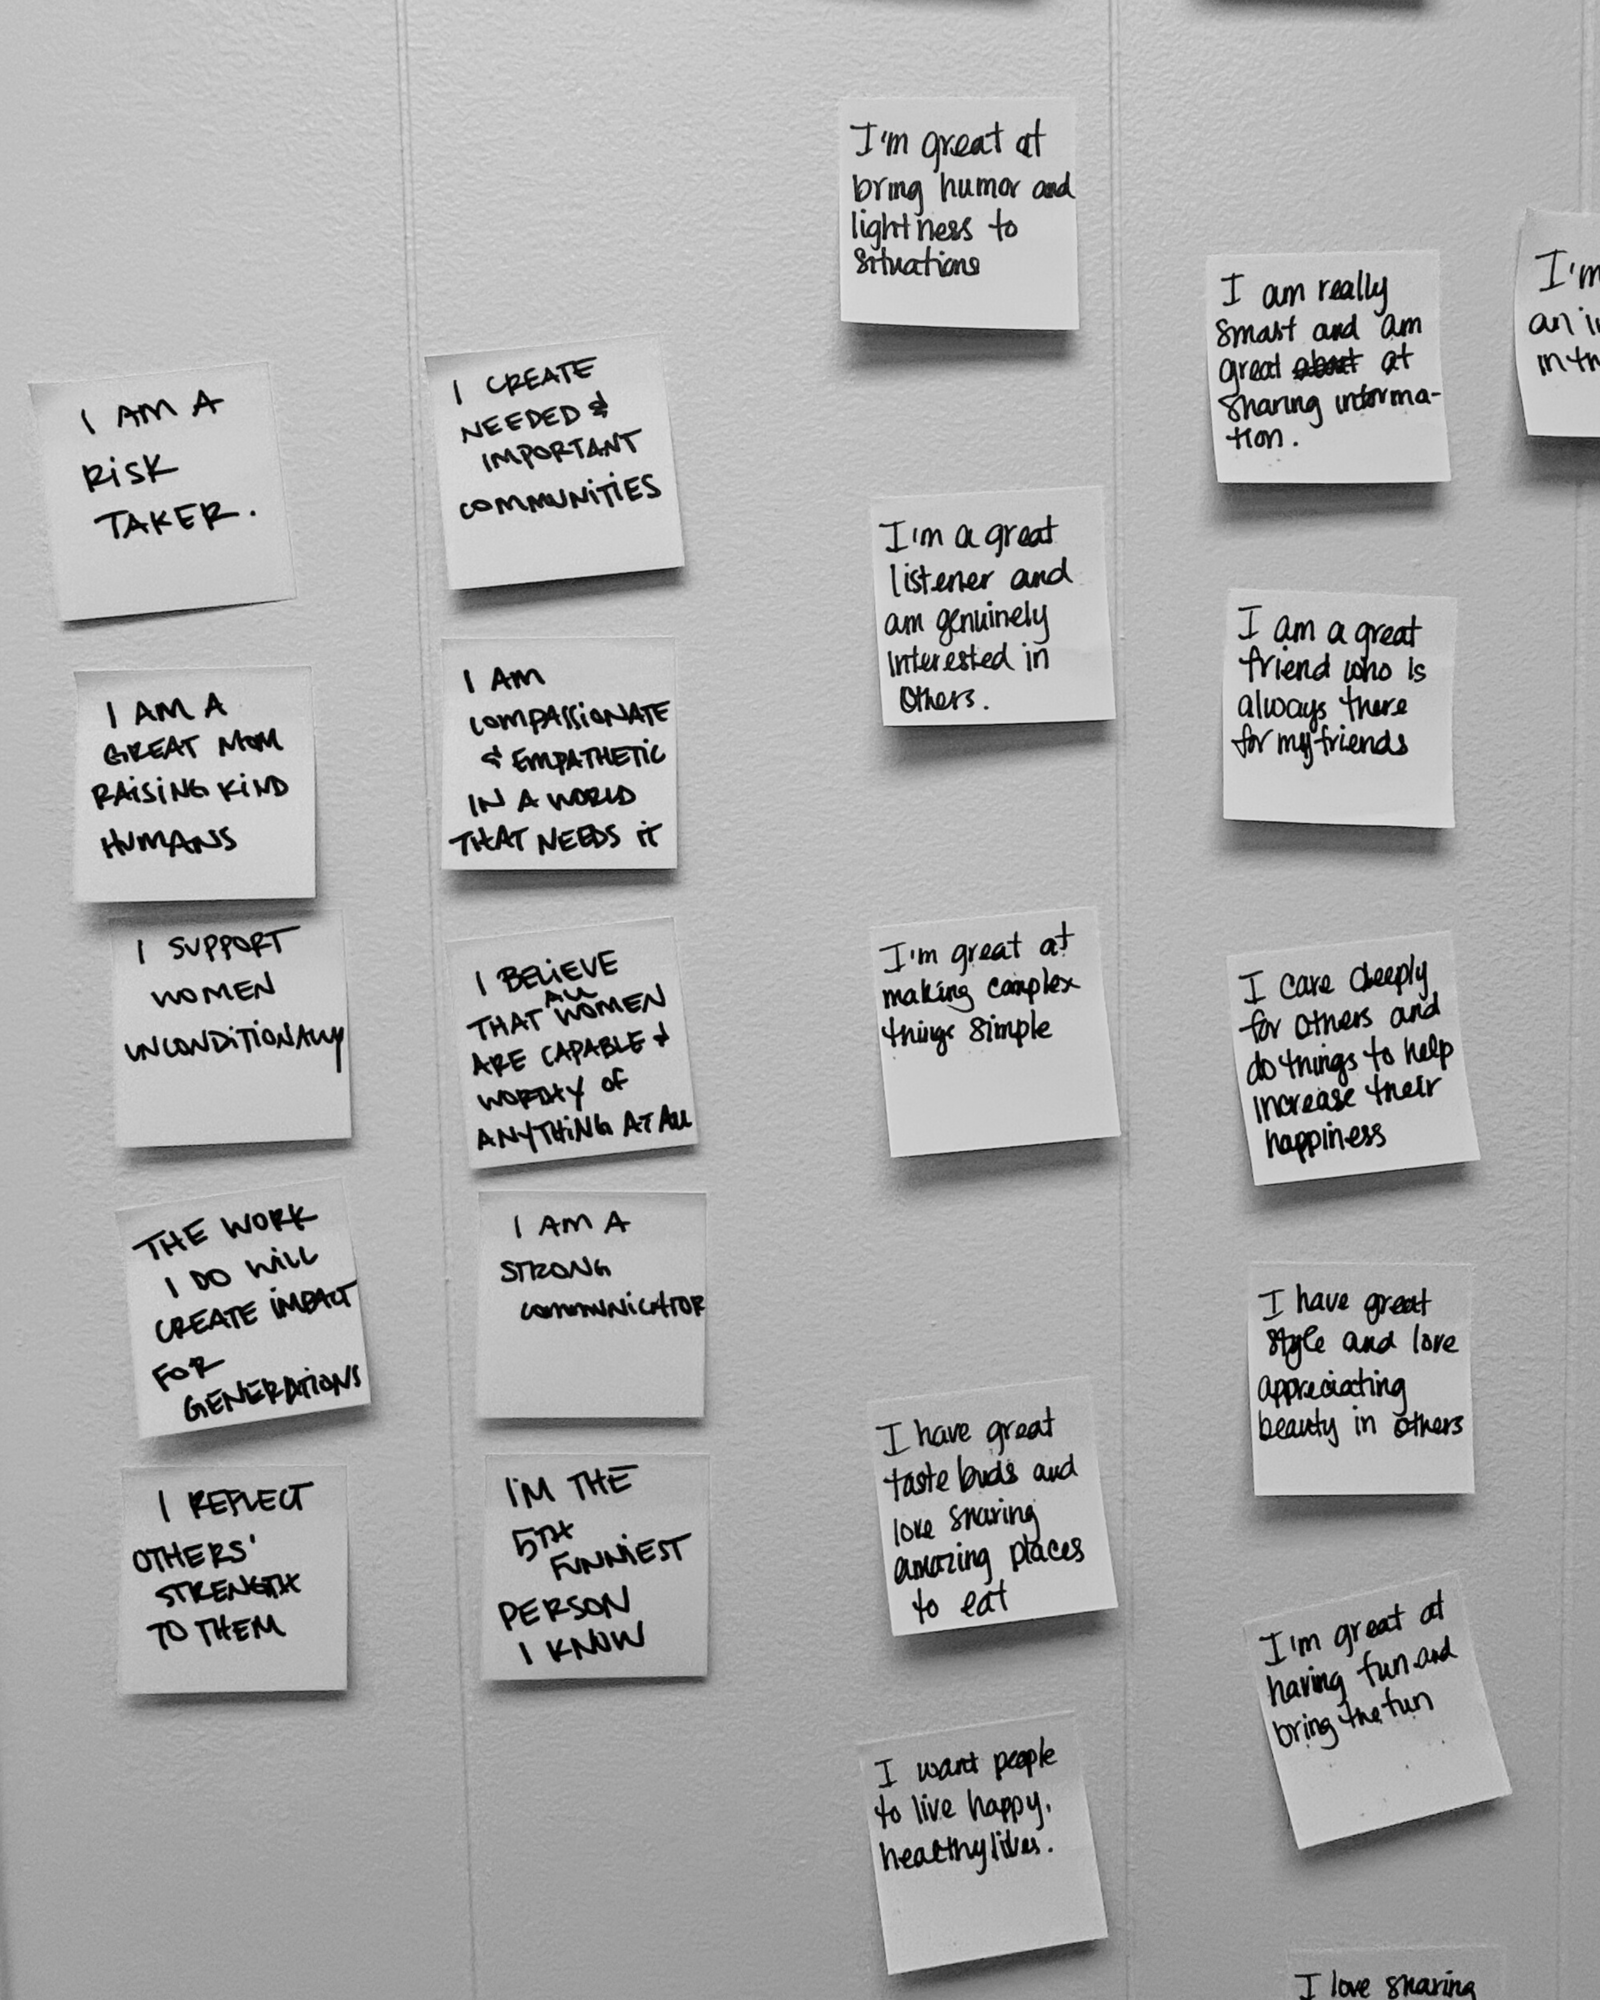 I AM A
RISK
TAKER.
I AM A
GREAT MOM
RAISING KIND
HUMANS
I SUPPORT
WOMEN
UNCONDITIONALLY
THE WORK
I DO WILL
CREATE IMPACT
FOR
GENERATIONS
I REFLECT
OTHERS'
STRENGTH
TO THEM
I CREATE
NEEDED &
IMPORTANT
COMMUNITIES
I AM
COMPASSIONATE
& EMPATHETIC
IN A WORLD
THAT NEEDS IT
I BELIEVE
THAT ALL WOMEN
ARE CAPABLE &
WORTHY OF
ANYTHING AT ALL
I AM A
STRONG
COMMUNICATOR
I'M THE
5TH
FUNNIEST
PERSON
I KNOW
I'm great at
bring humor and
lightness to
situations
I'm a great
listener and
am genuinely
interested in
others.
I'm great at
making complex
things simple
I have great
taste buds and
love sharing
amazing places
to eat
I want people
to live happy,
healthy lives.
I am really
smart and am
great about at
sharing informa-
tion.
I am a great
friend who is
always there
for my friends
I care deeply
for others and
do things to help
increase their
happiness
I have great
style and love
appreciating
beauty in others
I'm great at
having fun and
bring the fun
I love sharing
I'm
an